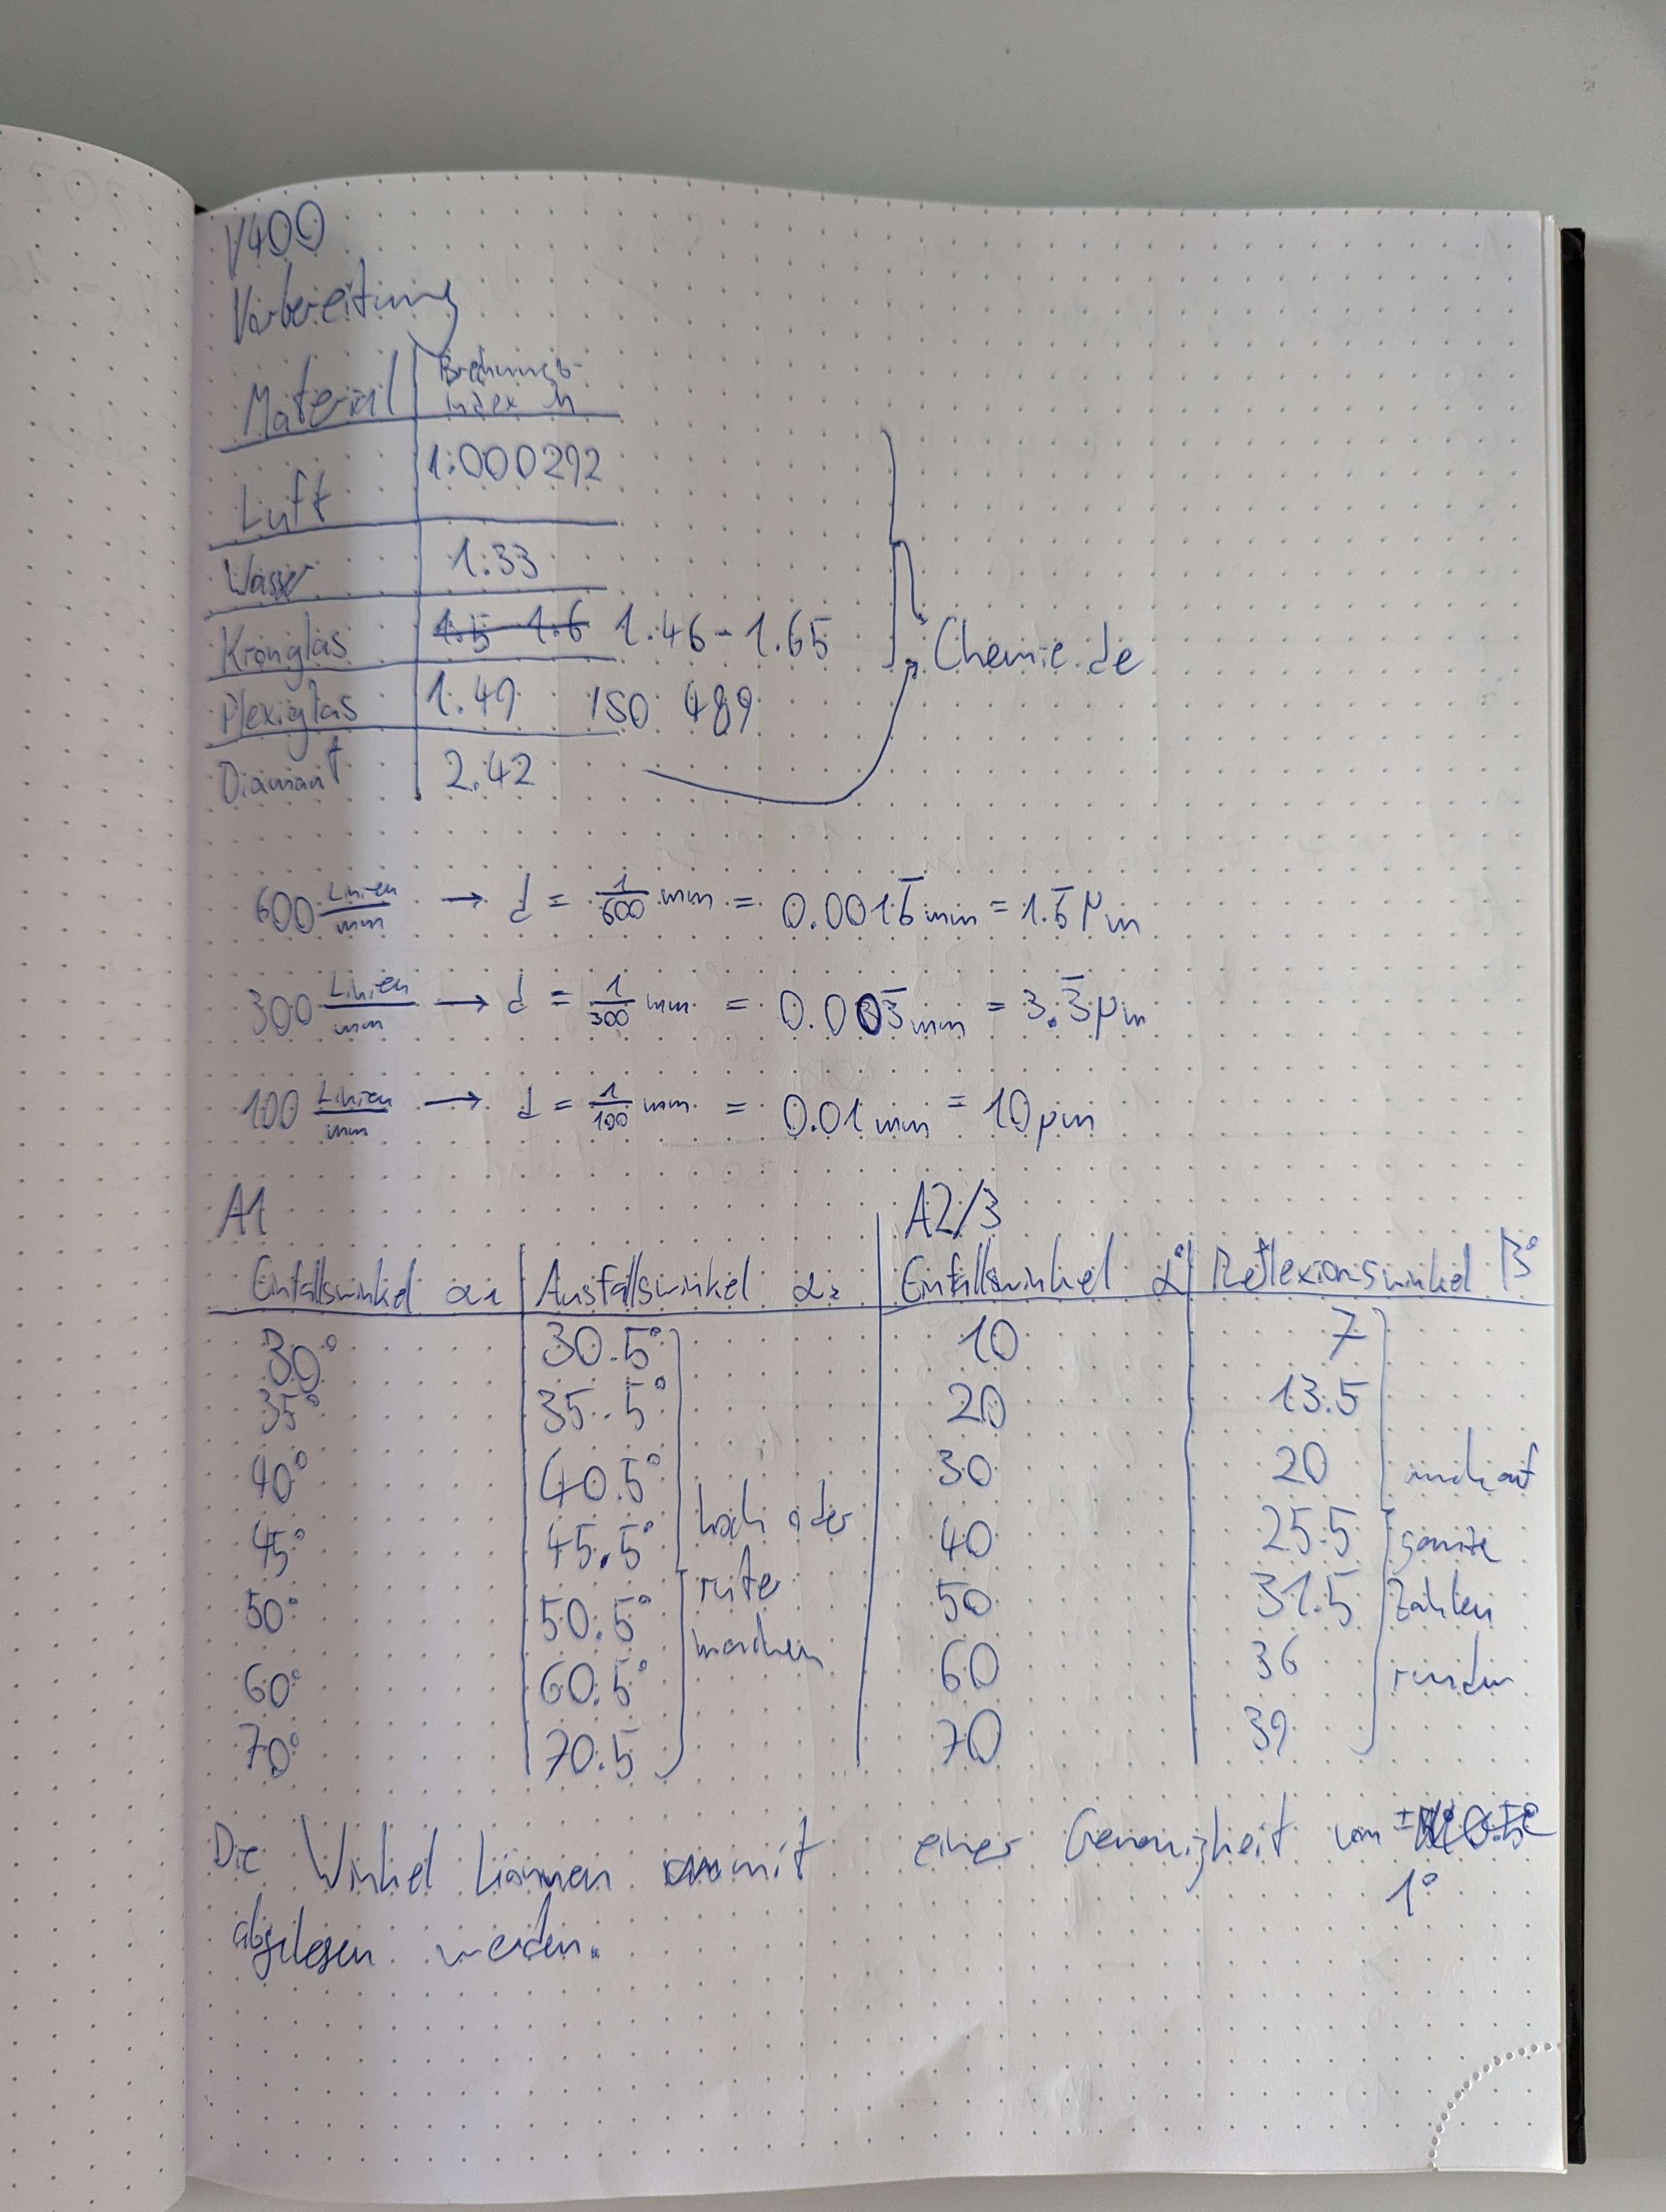 V400
Vorbereitung
Material | Brechungs-index n
Luft | 1.000292
Wasser | 1.33
Kronglas | 1.5-1.6 1.46-1.65
Chemie.de
Plexiglas | 1.49 ISO 489
Diamant | 2.42
600 Linien/mm → d = 1/600 mm = 0.0016̅ mm = 1.6̅ μm
300 Linien/mm → d = 1/300 mm = 0.003̅ mm = 3.3̅ μm
100 Linien/mm → d = 1/100 mm = 0.01 mm = 10 μm
A1
Einfallswinkel α1 | Ausfallswinkel α2
30° | 30.5°
35° | 35.5°
40° | 40.5°
45° | 45.5°
50° | 50.5°
60° | 60.5°
70° | 70.5
hoch oder
runter
machen
A2/3
Einfallswinkel α° | Reflexionswinkel β°
10 | 7
20 | 13.5
30 | 20
40 | 25.5
50 | 31.5
60 | 36
70 | 39
auf
ganze
Zahlen
runden
Die Winkel können mit einer Genauigkeit von ± 0.5°
1°
abgelesen werden.